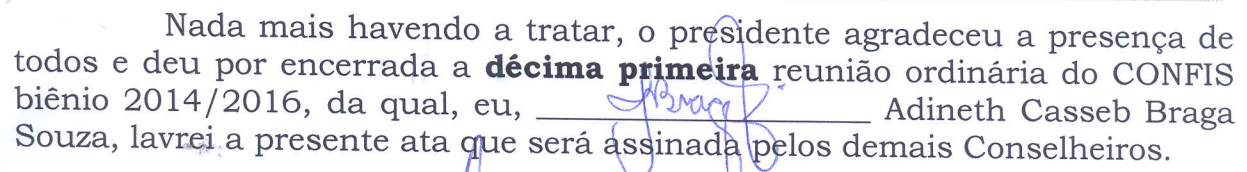 Nada mais havendo a tratar, o presidente agradeceu a presença de
todos e deu por encerrada a décima primeira reunião ordinária do CONFIS
biênio 2014/2016, da qual, eu, ABraga Adineth Casseb Braga
Souza, lavrei a presente ata que será assinada pelos demais Conselheiros.